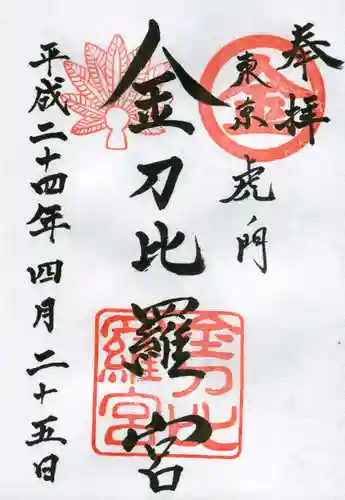 奉拝
東京
虎ノ門
金刀比羅宮
平成二十四年四月二十五日
金
金刀比羅宮